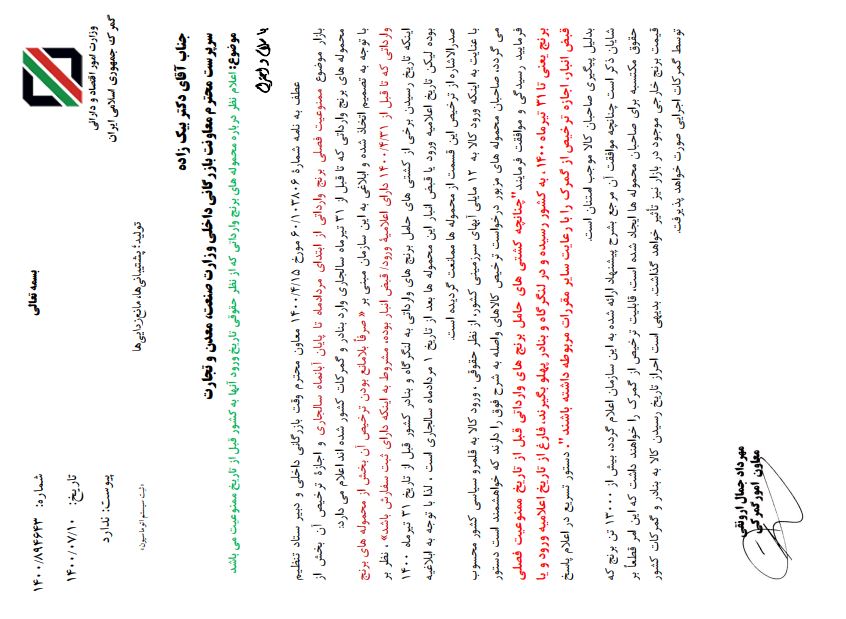 بسمه تعالی
گمرک جمهوری اسلامی ایران
وزارت امور اقتصاد و دارائی
تولید؛ پشتیبانی‌ها، مانع‌زدایی‌ها
شماره: ۱۴۰۰/۸۹۴۶۴۳
تاریخ: ۱۴۰۰/۰۷/۱۰
پیوست: ندارد
«ثبت سیستم اتوماسیون»
جناب آقای دکتر بیک زاده
سرپرست محترم معاونت بازرگانی داخلی وزارت صنعت، معدن و تجارت
موضوع: اعلام نظر درباره محموله های برنج وارداتی که از نظر حقوقی تاریخ ورود آنها به کشور قبل از تاریخ ممنوعیت می باشد
عطف به نامه شماره ۶۰/۱۰۳۸۰۶ مورخ ۱۴۰۰/۴/۱۵ معاون محترم وقت بازرگانی داخلی و دبیر ستاد تنظیم
بازار موضوع ممنوعیت فصلی برنج وارداتی از ابتدای مردادماه تا پایان آبانماه سالجاری و اجازه ترخیص آن بخش از
محموله های برنج وارداتی که تا قبل از ۳۱ تیرماه سالجاری وارد بنادر و گمرکات کشور شده اند اعلام می دارد:
با توجه به تصمیم اتخاذ شده و ابلاغی به این سازمان مبنی بر « صرفاً بلامانع بودن ترخیص آن بخش از محموله های برنج
وارداتی که تا قبل از ۱۴۰۰/۴/۳۱ دارای اعلامیه ورود/ قبض انبار بوده، مشروط به اینکه دارای ثبت سفارش باشد» ، نظر بر
اینکه تاریخ رسیدن برخی از کشتی های حامل برنج های وارداتی به لنگرگاه و بنادر کشور قبل از تاریخ ۳۱ تیرماه ۱۴۰۰
بوده لیکن تاریخ اعلامیه ورود یا قبض انبار این محموله ها بعد از تاریخ ۱ مردادماه سالجاری است ، لذا با توجه به ابلاغیه
صدرالاشاره از ترخیص این قسمت از محموله ها ممانعت گردیده است.
با عنایت به اینکه ورود کالا به ۱۲ مایلی آبهای سرزمینی کشور، از نظر حقوقی ، ورود کالا به قلمرو سیاسی کشور محسوب
می گردد، صاحبان محموله های مزبور درخواست ترخیص کالاهای واصله به شرح فوق را دارند که خواهشمند است دستور
فرمایید رسیدگی و موافقت فرمایند "چنانچه کشتی های حامل برنج های وارداتی قبل از تاریخ ممنوعیت فصلی
برنج یعنی تا ۳۱ تیرماه ۱۴۰۰ ، به کشور رسیده و در لنگرگاه و بنادر پهلو بگیرند، فارغ از تاریخ اعلامیه ورود و یا
قبض انبار، اجازه ترخیص از گمرک را با رعایت سایر مقررات مربوطه داشته باشند". دستور تسریع در اعلام پاسخ
بدلیل پیگیری صاحبان کالا موجب امتنان است.
شایان ذکر است چنانچه موافقت آن مرجع بشرح پیشنهاد ارائه شده به این سازمان اعلام گردد، بیش از ۱۳۰۰۰ تن برنج که
حقوق مکتسبه برای صاحبان محموله ها ایجاد شده است، قابلیت ترخیص از گمرک را خواهند داشت که این امر قطعاً بر
قیمت برنج خارجی موجود در بازار نیز تأثیر خواهد گذاشت بدیهی است احراز تاریخ رسیدن کالا به بنادر و گمرکات کشور
توسط گمرکات اجرایی صورت خواهد پذیرفت.
مهرداد جمال ارونقی
معاون امور گمرکی